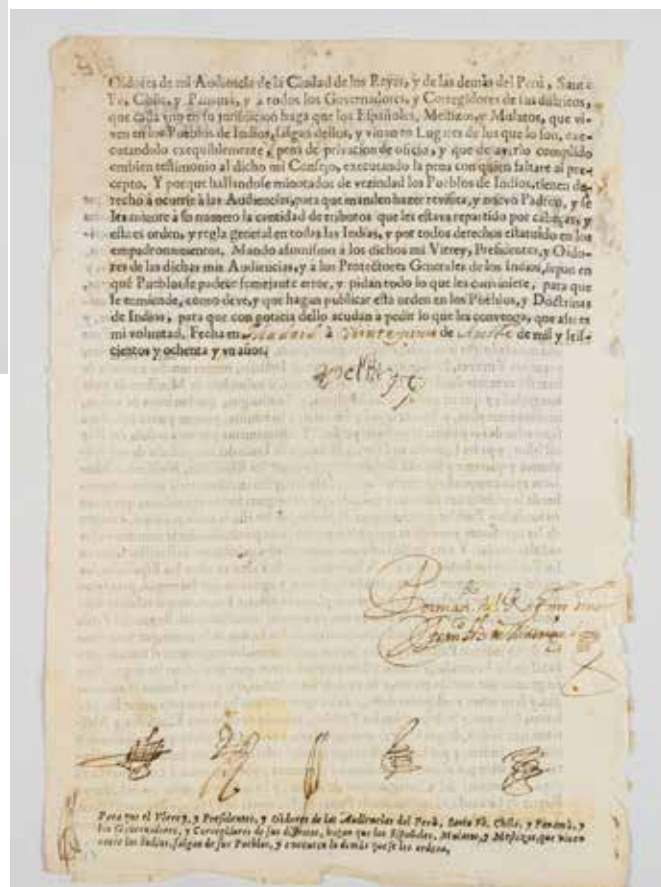 Oidores de mi Audiencia de la Ciudad de los Reyes, y de las demàs del Perù, Santa
Fè, Chile, y Panamà, y a todos los Governadores, y Corregidores de sus distritos,
que cada vno en su jurisdicion haga que los Españoles, Mestizos, y Mulatos, que vi-
ven en los Pueblos de Indios, salgan dellos, y vivan en Lugares de los que lo son, exe-
cutandolo exequiblemente, pena de privacion de oficio, y que de averlo cumplido
embien testimonio al dicho mi Consejo, executando la pena con quien faltare al pre-
cepto. Y porque hallandose minorados de vezindad los Pueblos de Indios, tienen de-
recho à ocurrir à las Audiencias, para que manden hazer revisita, y nuevo Padron, y se
les minore à su numero la cantidad de tributos que les estava repartido por cabeças, y
esta es orden, y regla general en todas las Indias, y por todos derechos estatuido en los
empadronamientos. Mando assimismo à los dichos mi Virrey, Presidentes, y Oido-
res de las dichas mis Audiencias, y à los Protectores Generales de los Indios, sepan en
què Pueblos se padece semejante error, y pidan todo lo que les conviniere, para que
se enmiende, como deve, y que hagan publicar esta orden en los Pueblos, y Doctrinas
de Indios, para que con noticia dello acudan a pedir lo que les convenga, que assi es
mi voluntad. Fecha en Madrid à de de mil y seis-
cientos y ochenta y vn años.
Yo el Rey
Por man.do del Rey
Para que el Virrey, y Presidentes, y Oidores de las Audiencias del Perù, Santa Fè, Chile, y Panamà, y
los Governadores, y Corregidores de sus distritos, hagan que los Españoles, Mulatos, y Mestizos, que viven
entre los Indios, salgan de sus Pueblos, y executen lo demàs que se les ordena.